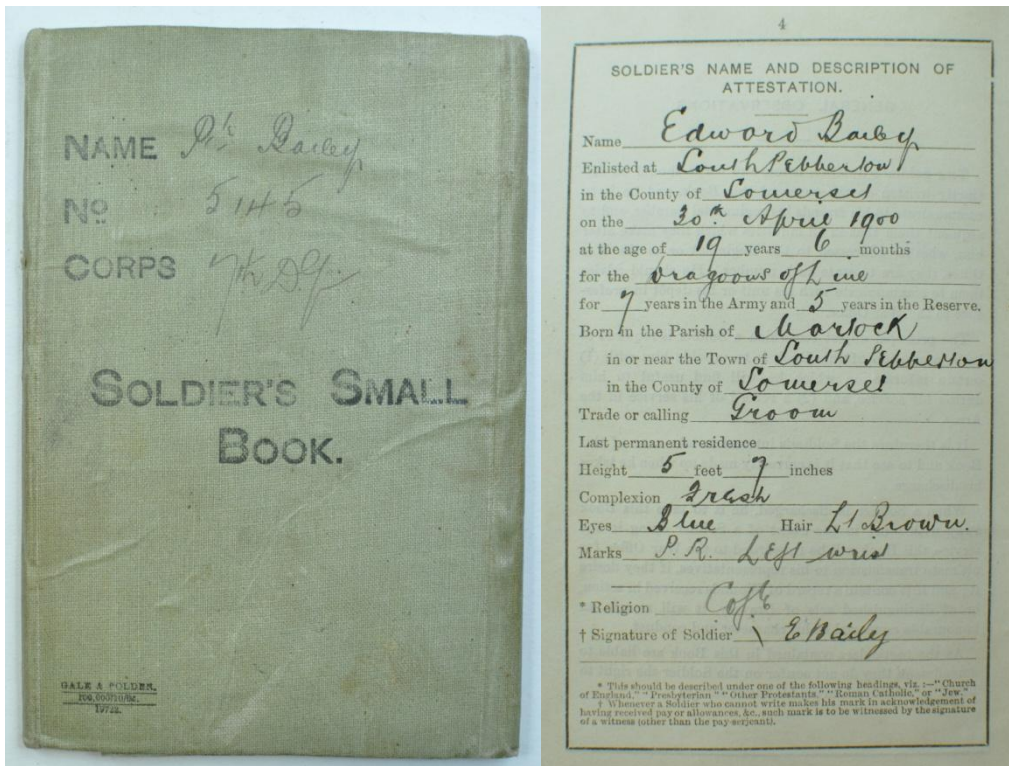 NAME Pt Bailey
No 5145
CORPS 7th D.G.
SOLDIER'S SMALL
BOOK.
GALE & POLDEN,
4
SOLDIER'S NAME AND DESCRIPTION OF
ATTESTATION.
Name Edward Baily
Enlisted at South Pebberton
in the County of Somerset
on the 30th April 1900
at the age of 19 years 6 months
for the Dragoons of Line
for 7 years in the Army and 5 years in the Reserve.
Born in the Parish of Martock
in or near the Town of South Pebberton
in the County of Somerset
Trade or calling Groom
Last permanent residence
Height 5 feet 7 inches
Complexion Fresh
Eyes Blue Hair Lt Brown.
Marks P.R. Left wrist
* Religion C of E
† Signature of Soldier \ E Baily
* This should be described under one of the following headings, viz.:—"Church
of England," "Presbyterian" "Other Protestants." "Roman Catholic," or "Jew."
† Whenever a Soldier who cannot write makes his mark in acknowledgement of
having received pay or allowances, &c., such mark is to be witnessed by the signature
of a witness (other than the pay-serjeant).